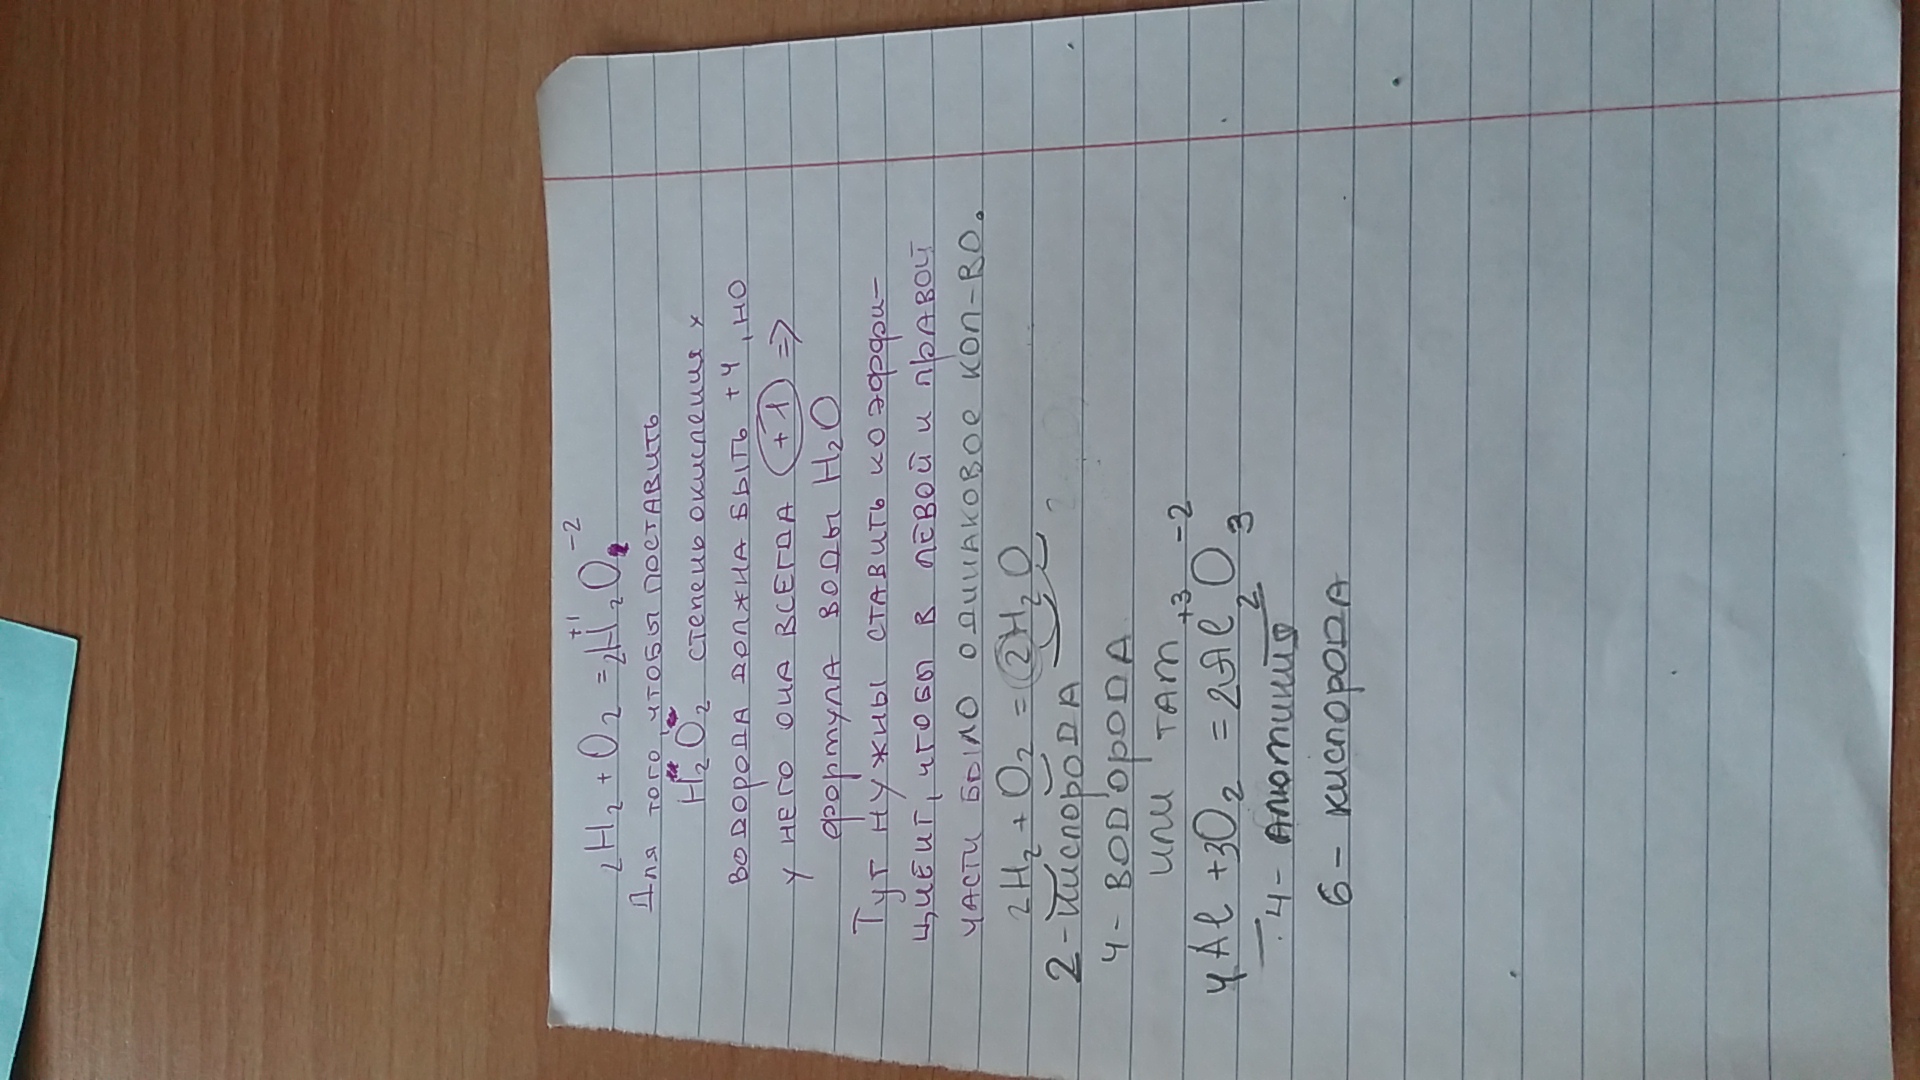 2H2 + O2 = 2H2O2 +1 -2
Для того, чтобы поставить
H2O2 степень окисления х
водорода должна быть +4, но
у него она всегда +1 =>
формула воды H2O
Тут нужны ставить коэффи-
циент, чтобы в левой и правой
части было одинаковое кол-во.
2H2 + O2 = 2H2O
2 - кислорода
4 - водорода
или там +3 -2
4Al + 3O2 = 2Al2O3
4 - алюминия
6 - кислорода